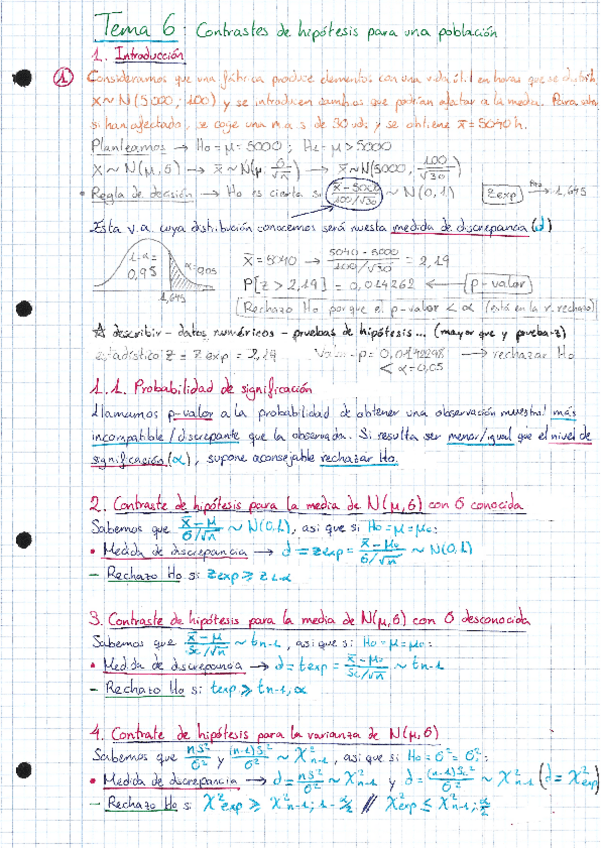 Tema 6: Contrastes de hipótesis para una población
1. Introducción
① Consideramos que una fábrica produce elementos con una vida útil en horas que se distrib.
X~N(5000, 100) y se introducen cambios que podrían afectar a la media. Para
si han afectado, se coge una m.a.s de 30 uds y se obtiene x̄ = 5040 h.
Planteamos → H₀ = μ = 5000 ; H₁ = μ > 5000
X ~ N(μ, σ) → x̄ ~ N(μ, σ/√n) → x̄ ~ N(5000, 100/√30)
• Regla de decisión → H₀ es cierta si (x̄ - 5000)/(100/√30) ~ N(0,1) zexp → 1,645
Esta v.a. cuya distribución conocemos será nuestra medida de discrepancia (d)
1-α = 0,95 α = 0,05 1,645
x̄ = 5040 → (5040 - 5000)/(100/√30) = 2,19
P[z > 2,19] = 0,014262 ← p-valor
Rechazo H₀ porque el p-valor < α (está en la r. rechazo)
☆ describir - datos numéricos - pruebas de hipótesis... (mayor que y prueba-z)
estadístico z = zexp = 2,19 Valor-p = → rechazar H₀
< α = 0,05
1.1. Probabilidad de significación
Llamamos p-valor a la probabilidad de obtener una observación muestral más
incompatible / discrepante que la observada. Si resulta ser menor/igual que el nivel de
significación (α), supone aconsejable rechazar H₀.
2. Contraste de hipótesis para la media de N(μ, σ) con σ conocida
Sabemos que (x̄ - μ)/(σ/√n) ~ N(0,1), así que si H₀ = μ = μ₀:
• Medida de discrepancia → d = zexp = (x̄ - μ₀)/(σ/√n) ~ N(0,1)
- Rechazo H₀ si zexp ≥ z1-α
3. Contraste de hipótesis para la media de N(μ, σ) con σ desconocida
Sabemos que (x̄ - μ)/(Sc/√n) ~ tn-1, así que si H₀ = μ = μ₀:
• Medida de discrepancia → d = texp = (x̄ - μ₀)/(Sc/√n) ~ tn-1
- Rechazo H₀ si: texp ≥ tn-1, α
4. Contrate de hipótesis para la varianza de N(μ, σ)
Sabemos que nS²/σ² y (n-1)Sc²/σ² ~ χ²n-1, así que si H₀ = σ² = σ₀²:
• Medida de discrepancia → d = nS²/σ² ~ χ²n-1 y d = (n-1)Sc²/σ² ~ χ²n-1 (d = χ²exp)
- Rechazo H₀ si χ²exp ≥ χ²n-1; 1-α/2 // χ²exp ≤ χ²n-1; α/2